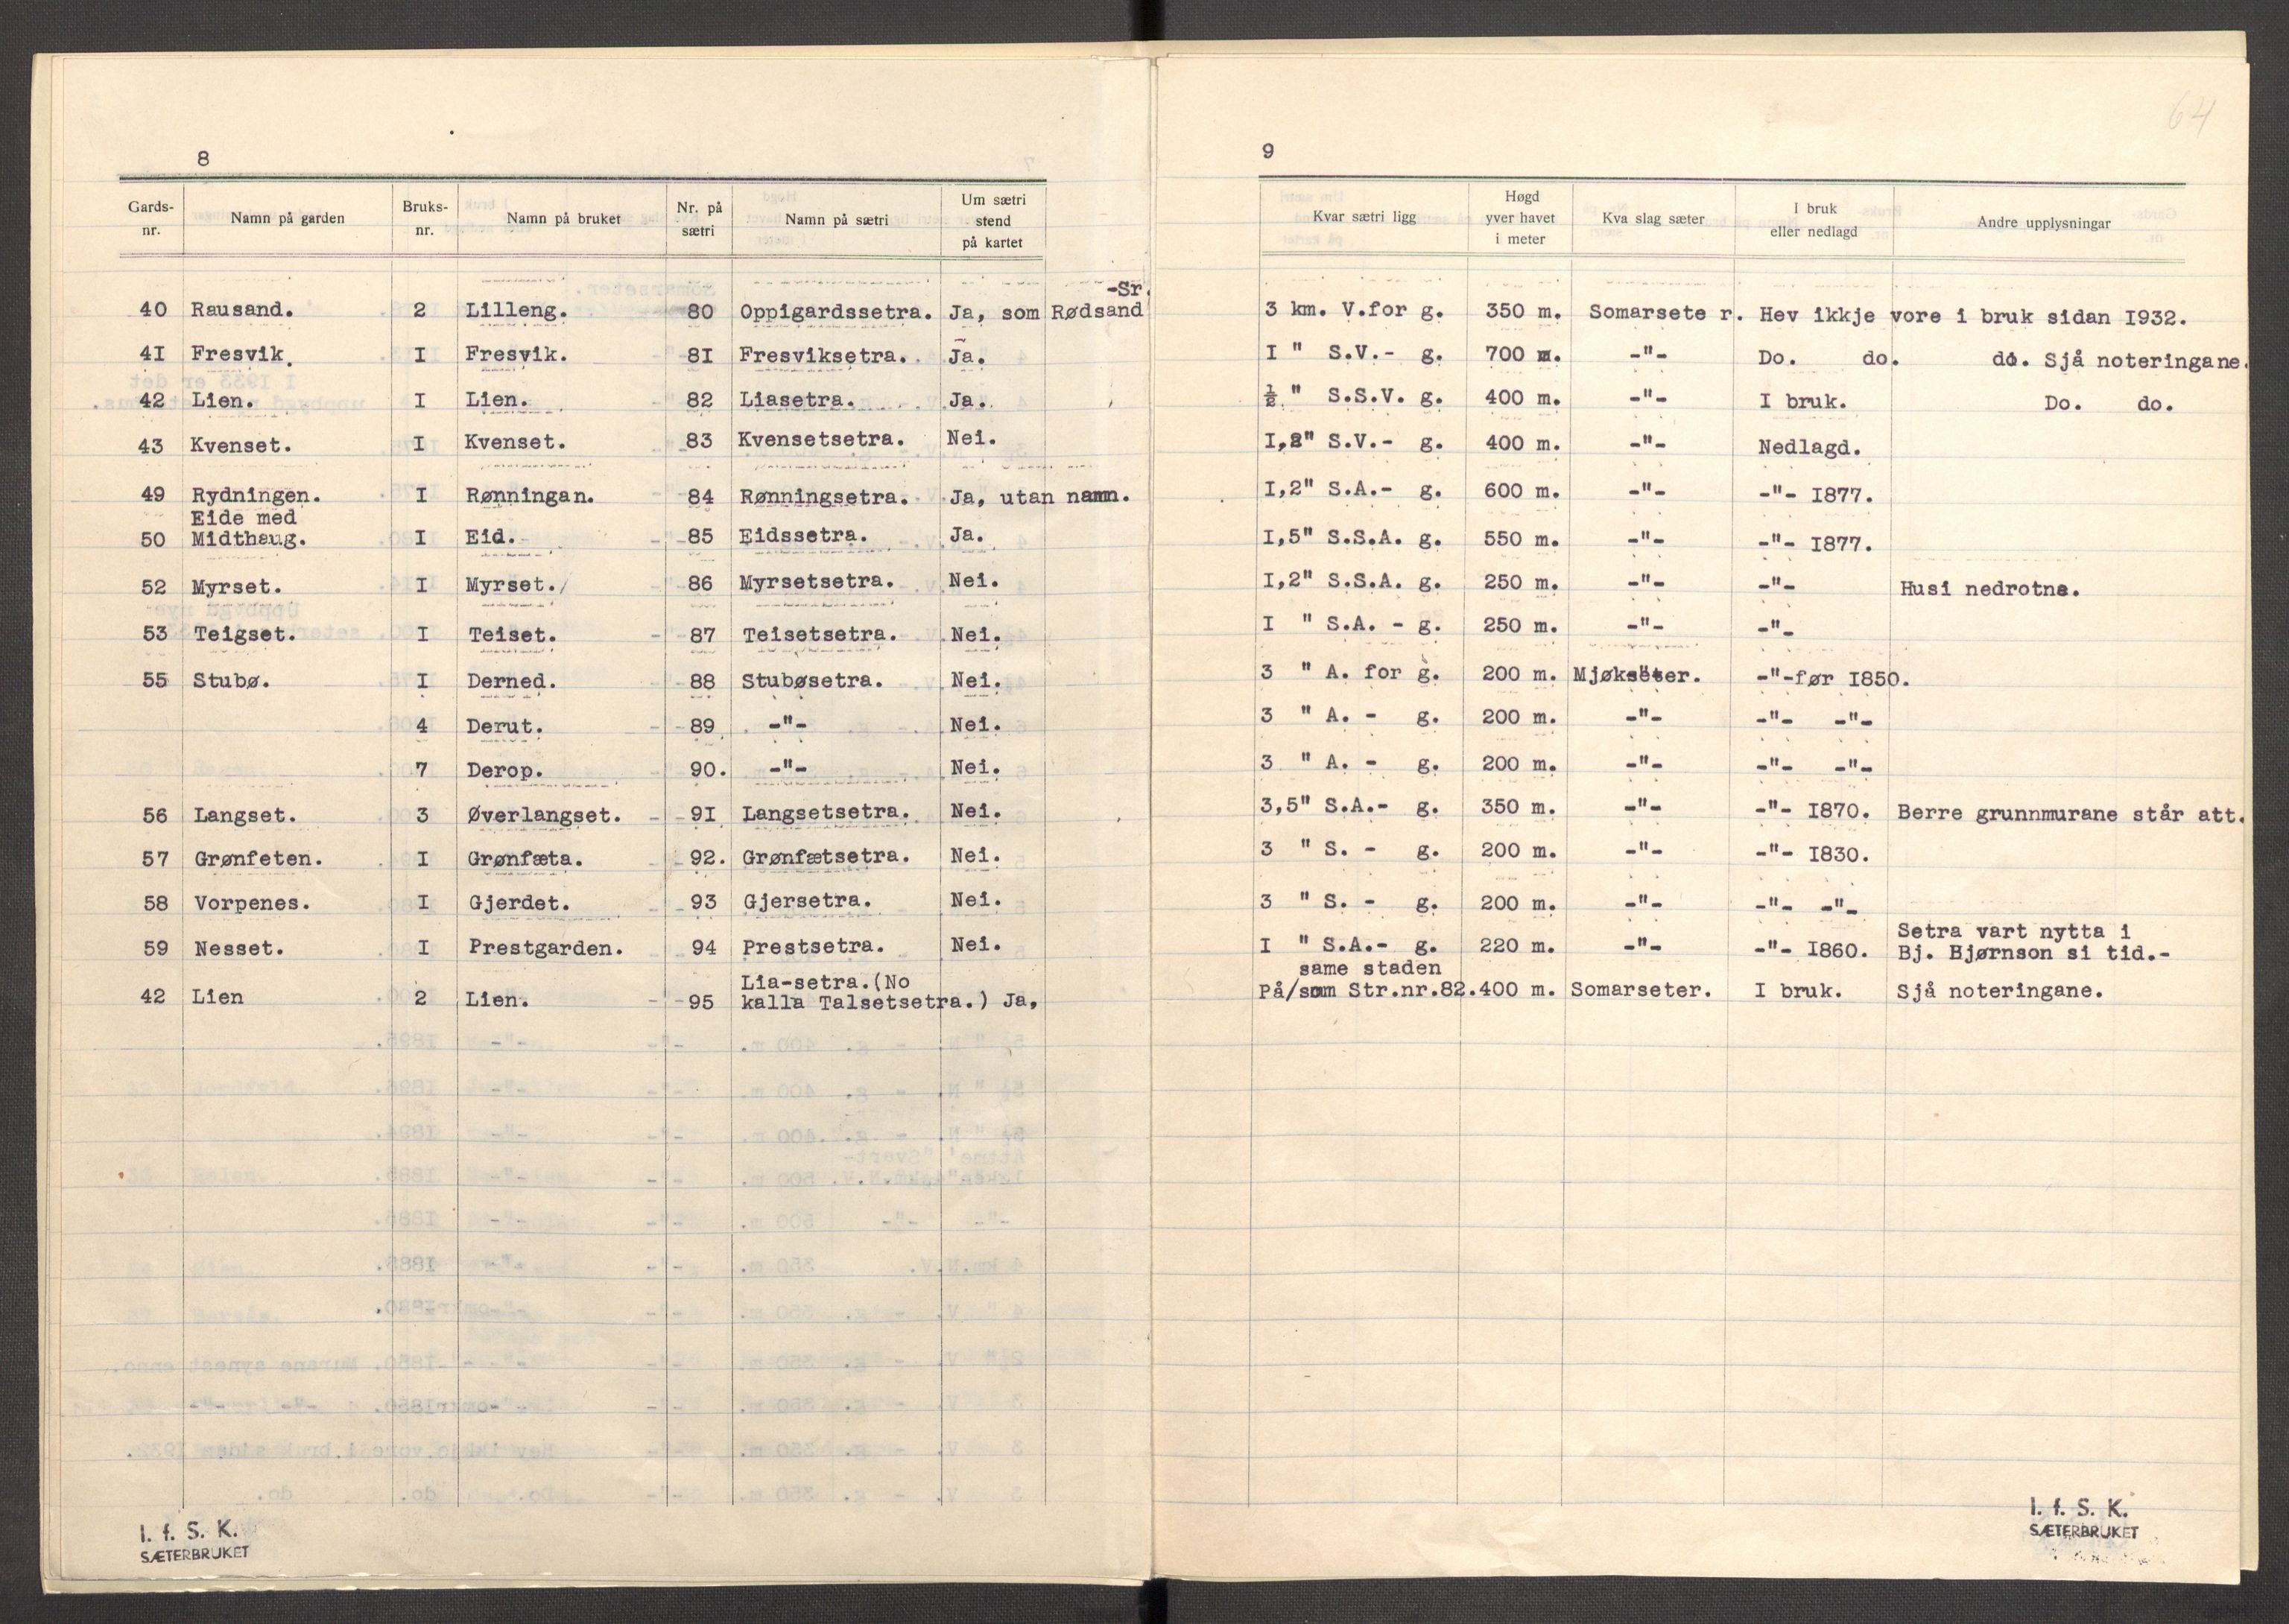 8
Gards-nr. Namn på garden Bruks-nr. Namn på bruket Nr. på sætri Namn på sætri Um sætri stend på kartet
-Sr.
40 Rausand. 2 Lilleng. 80 Oppigardssetra. Ja, som Rødsand
41 Fresvik. I Fresvik. -"- 81 Fresviksetra. Ja.
42 Lien. I Lien. 82 Liasetra. Ja.
43 Kvenset. I Kvenset. 83 Kvensetsetra. Nei.
49 Rydningen. I Rønningan. 84 Rønningsetra. Ja, utan namn.
Eide med
50 Midthaug. I Eid. 85 Eidssetra. Ja.
52 Myrset. I Myrset. 86 Myrsetsetra. Nei.
53 Teigset. I Teiset. 87 Teisetsetra. Nei.
55 Stubø. I Derned. 88 Stubøsetra. Nei.
4 Derut. 89 -"- Nei.
7 Derop. 90. -"- Nei.
56 Langset. 3 Øverlangset. 91 Langsetsetra. Nei.
57 Grønfeten. I Grønfæta. 92. Grønfætsetra. Nei.
58 Vorpenes. I Gjerdet. 93 Gjersetra. Nei.
59 Nesset. I Prestgarden. 94 Prestsetra. Nei.
Lia-setra.(No
42 Lien 2 Lien. 95 kalla Talsetsetra.) Ja,
I. f. S. K.
SÆTERBRUKET
64
9
Kvar sætri ligg Høgd yver havet i meter Kva slag sæter I bruk eller nedlagd Andre upplysningar
3 km. V.for g. 350 m. Somarsete r. Hev ikkje vore i bruk sidan I932.
I " S.V.- g. 700 m. -"- Do. do. do. Sjå noteringane.
½ " S.S.V. g. 400 m. -"- I bruk. Do. do.
I,2" S.V.- g. 400 m. -"- Nedlagd.
I,2" S.A.- g. 600 m. -"- -"- I877.
I,5" S.S.A. g. 550 m. -"- -"- I877.
I,2" S.S.A. g. 250 m. -"- -"- Husi nedrotne.
I " S.A. - g. 250 m. -"- -"-
3 " A. for g. 200 m. Mjøkseter. -"-før I850.
3 " A. - g. 200 m. -"- -"- -"-
3 " A. - g. 200 m. -"- -"- -"-
3,5" S.A.- g. 350 m. -"- -"- I870. Berre grunnmurane står att.
3 " S. - g. 200 m. -"- -"- I830.
3 " S. - g. 200 m. -"- -"- -"-
Setra vart nytta i
I " S.A.- g. 220 m. -"- -"- I860. Bj. Bjørnson si tid.-
same staden
På/som Str.nr.82. 400 m. Somarseter. I bruk. Sjå noteringane.
I. f. S. K.
SÆTERBRUKET